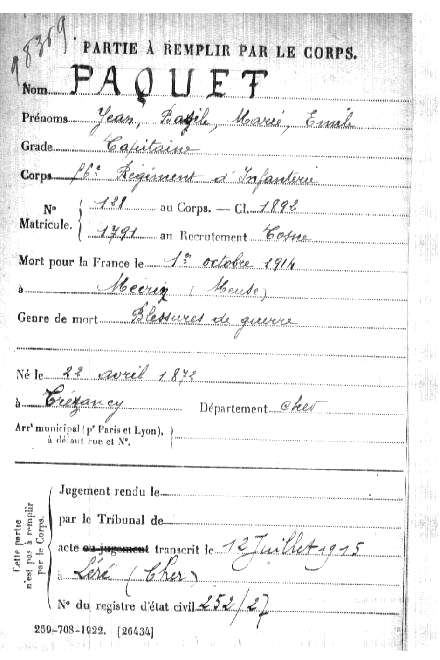 98369.
PARTIE À REMPLIR PAR LE CORPS.
Nom PAQUET
Prénoms Jean, Bazile, Marie, Emile
Grade Capitaine
Corps Régiment d'Infanterie
N° Matricule. 121 au Corps. — Cl. 1892
1791 au Recrutement Cosne
Mort pour la France le 1er octobre 1914
à (Meuse)
Genre de mort Blessures de guerre
Né le 22 avril 1872
à Département Cher
Arrt municipal (pr Paris et Lyon),
à défaut rue et N°.
Cette partie n'est pas à remplir par le Corps.
Jugement rendu le
par le Tribunal de
acte ou jugement transcrit le 12 Juillet 1915
à Léré (Cher)
N° du registre d'état civil 252/27
259-708-1922. [26434]